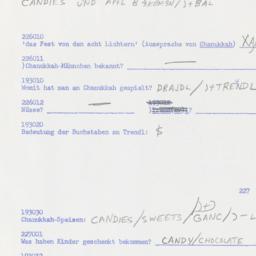 CANDIES UND
226010
'das Fest von den acht Lichtern' (Aussprache von Chanukkah)
226011
)Chanukkah-Männchen bekannt? —
193010
Womit hat man an Chanukkah gespielt? DRAJDL/)+TRENDL
226012
Nüsse? —
193020
Bedeutung der Buchstaben zu Trendl: $
227
193030
Chanukkah-Speisen: CANDIES/SWEETS/
227001
Was haben Kinder geschenkt bekommen? CANDY/CHOCOLATE